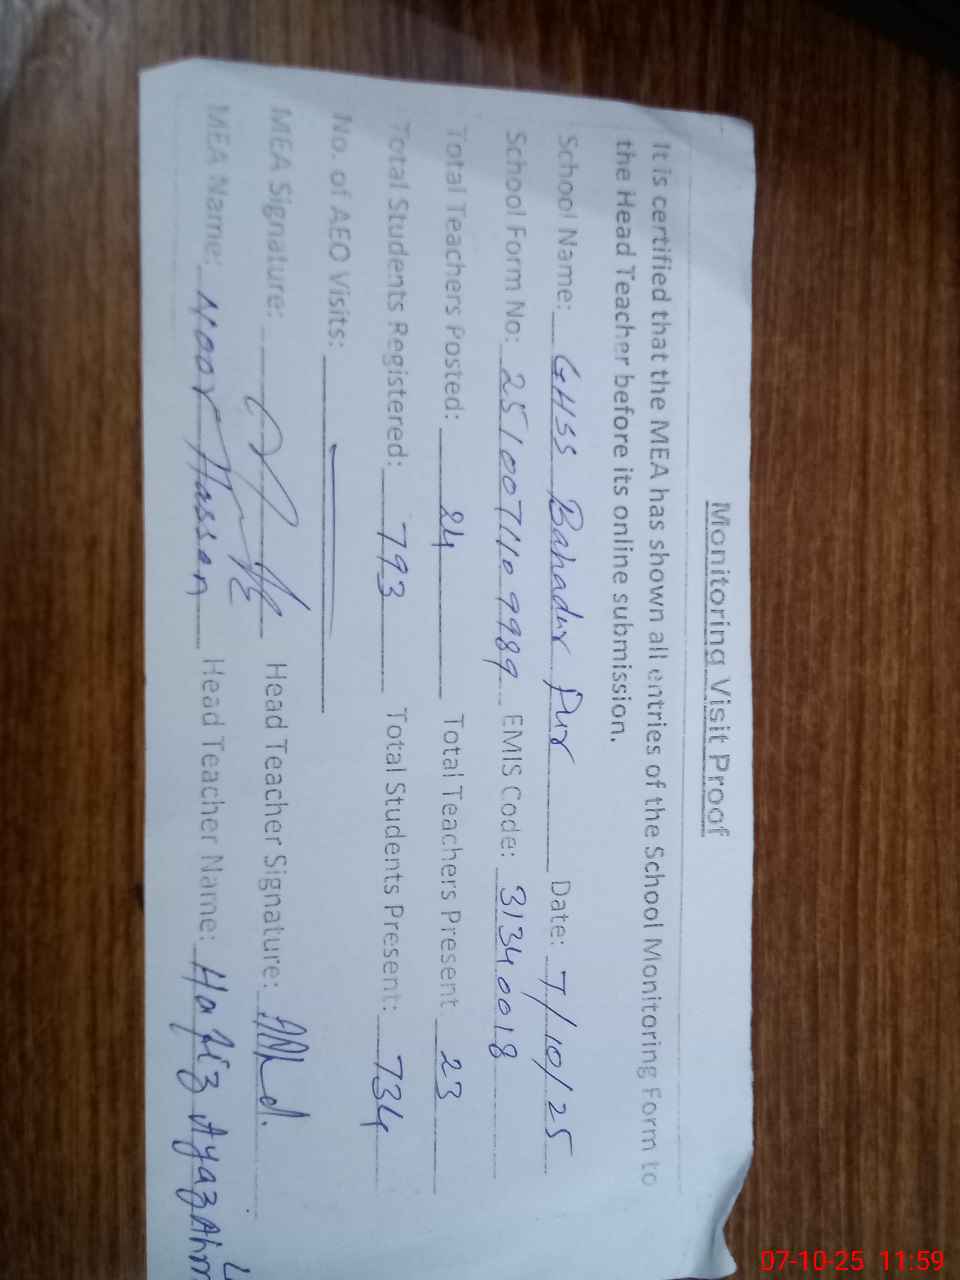 Monitoring Visit Proof
It is certified that the MEA has shown all entries of the School Monitoring Form to
the Head Teacher before its online submission.
School Name: GHSS Bahadur Pur Date: 7/10/25
School Form No: 25100741109989 EMIS Code: 31340018
Total Teachers Posted: 24 Total Teachers Present 23
Total Students Registered: 793 Total Students Present: 734
No. of AEO Visits:
MEA Signature: Head Teacher Signature:
MEA Name: Noor Hassan Head Teacher Name: Hafiz Ayaz Ahm
07-10-25 11:59